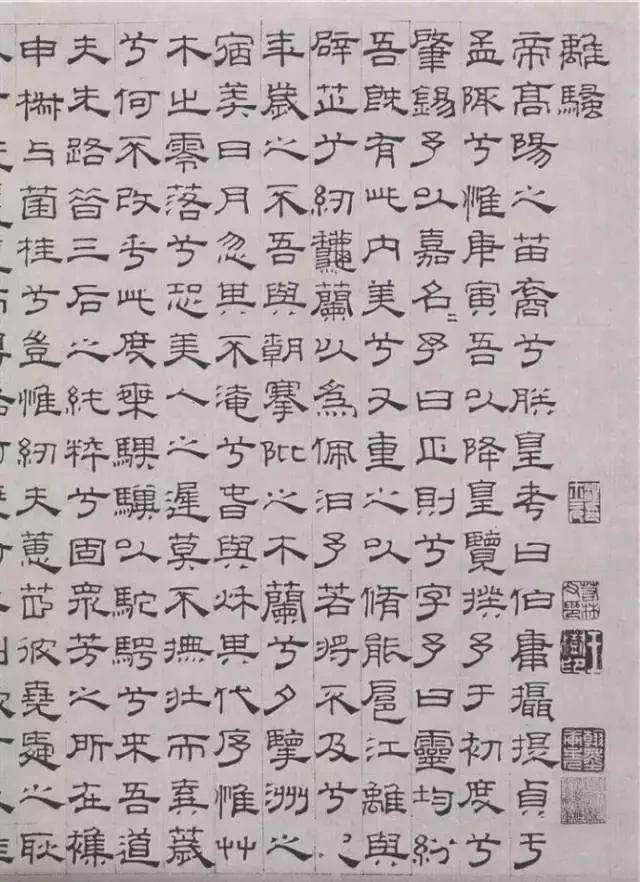 離騷
帝高陽之苗裔兮朕皇考曰伯庸攝提貞于
孟陬兮惟庚寅吾以降皇覽揆予于初度兮
肇錫予以嘉名〻予曰正則兮字予曰靈均紛
吾既有此內美兮又重之以脩能扈江離與
辟芷兮紉龝蘭以為佩汩予若將不及兮
年歲之不吾與朝搴阰之木蘭兮夕擥洲之
宿莽日月忽其不淹兮春與秌其代序惟艸
木之零落兮恐美人之遲莫不撫壯而棄薉
兮何不改乎此度椉騏驥以駝騁兮來吾道
夫先路昔三后之純粹兮固眾芳之所在襍
申椒与菌桂兮豈惟紉夫蕙茝彼堯舜之耿